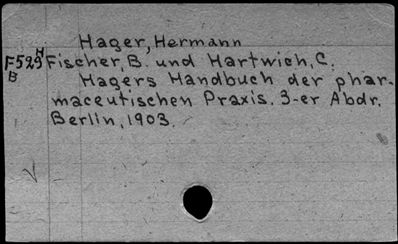 Hager, Hermann
F529H Fischer, B. und Hartwich, C.
B
Hagers Handbuch der phar-
maceutischen Praxis. 3-er Abdr.
Berlin, 1903.